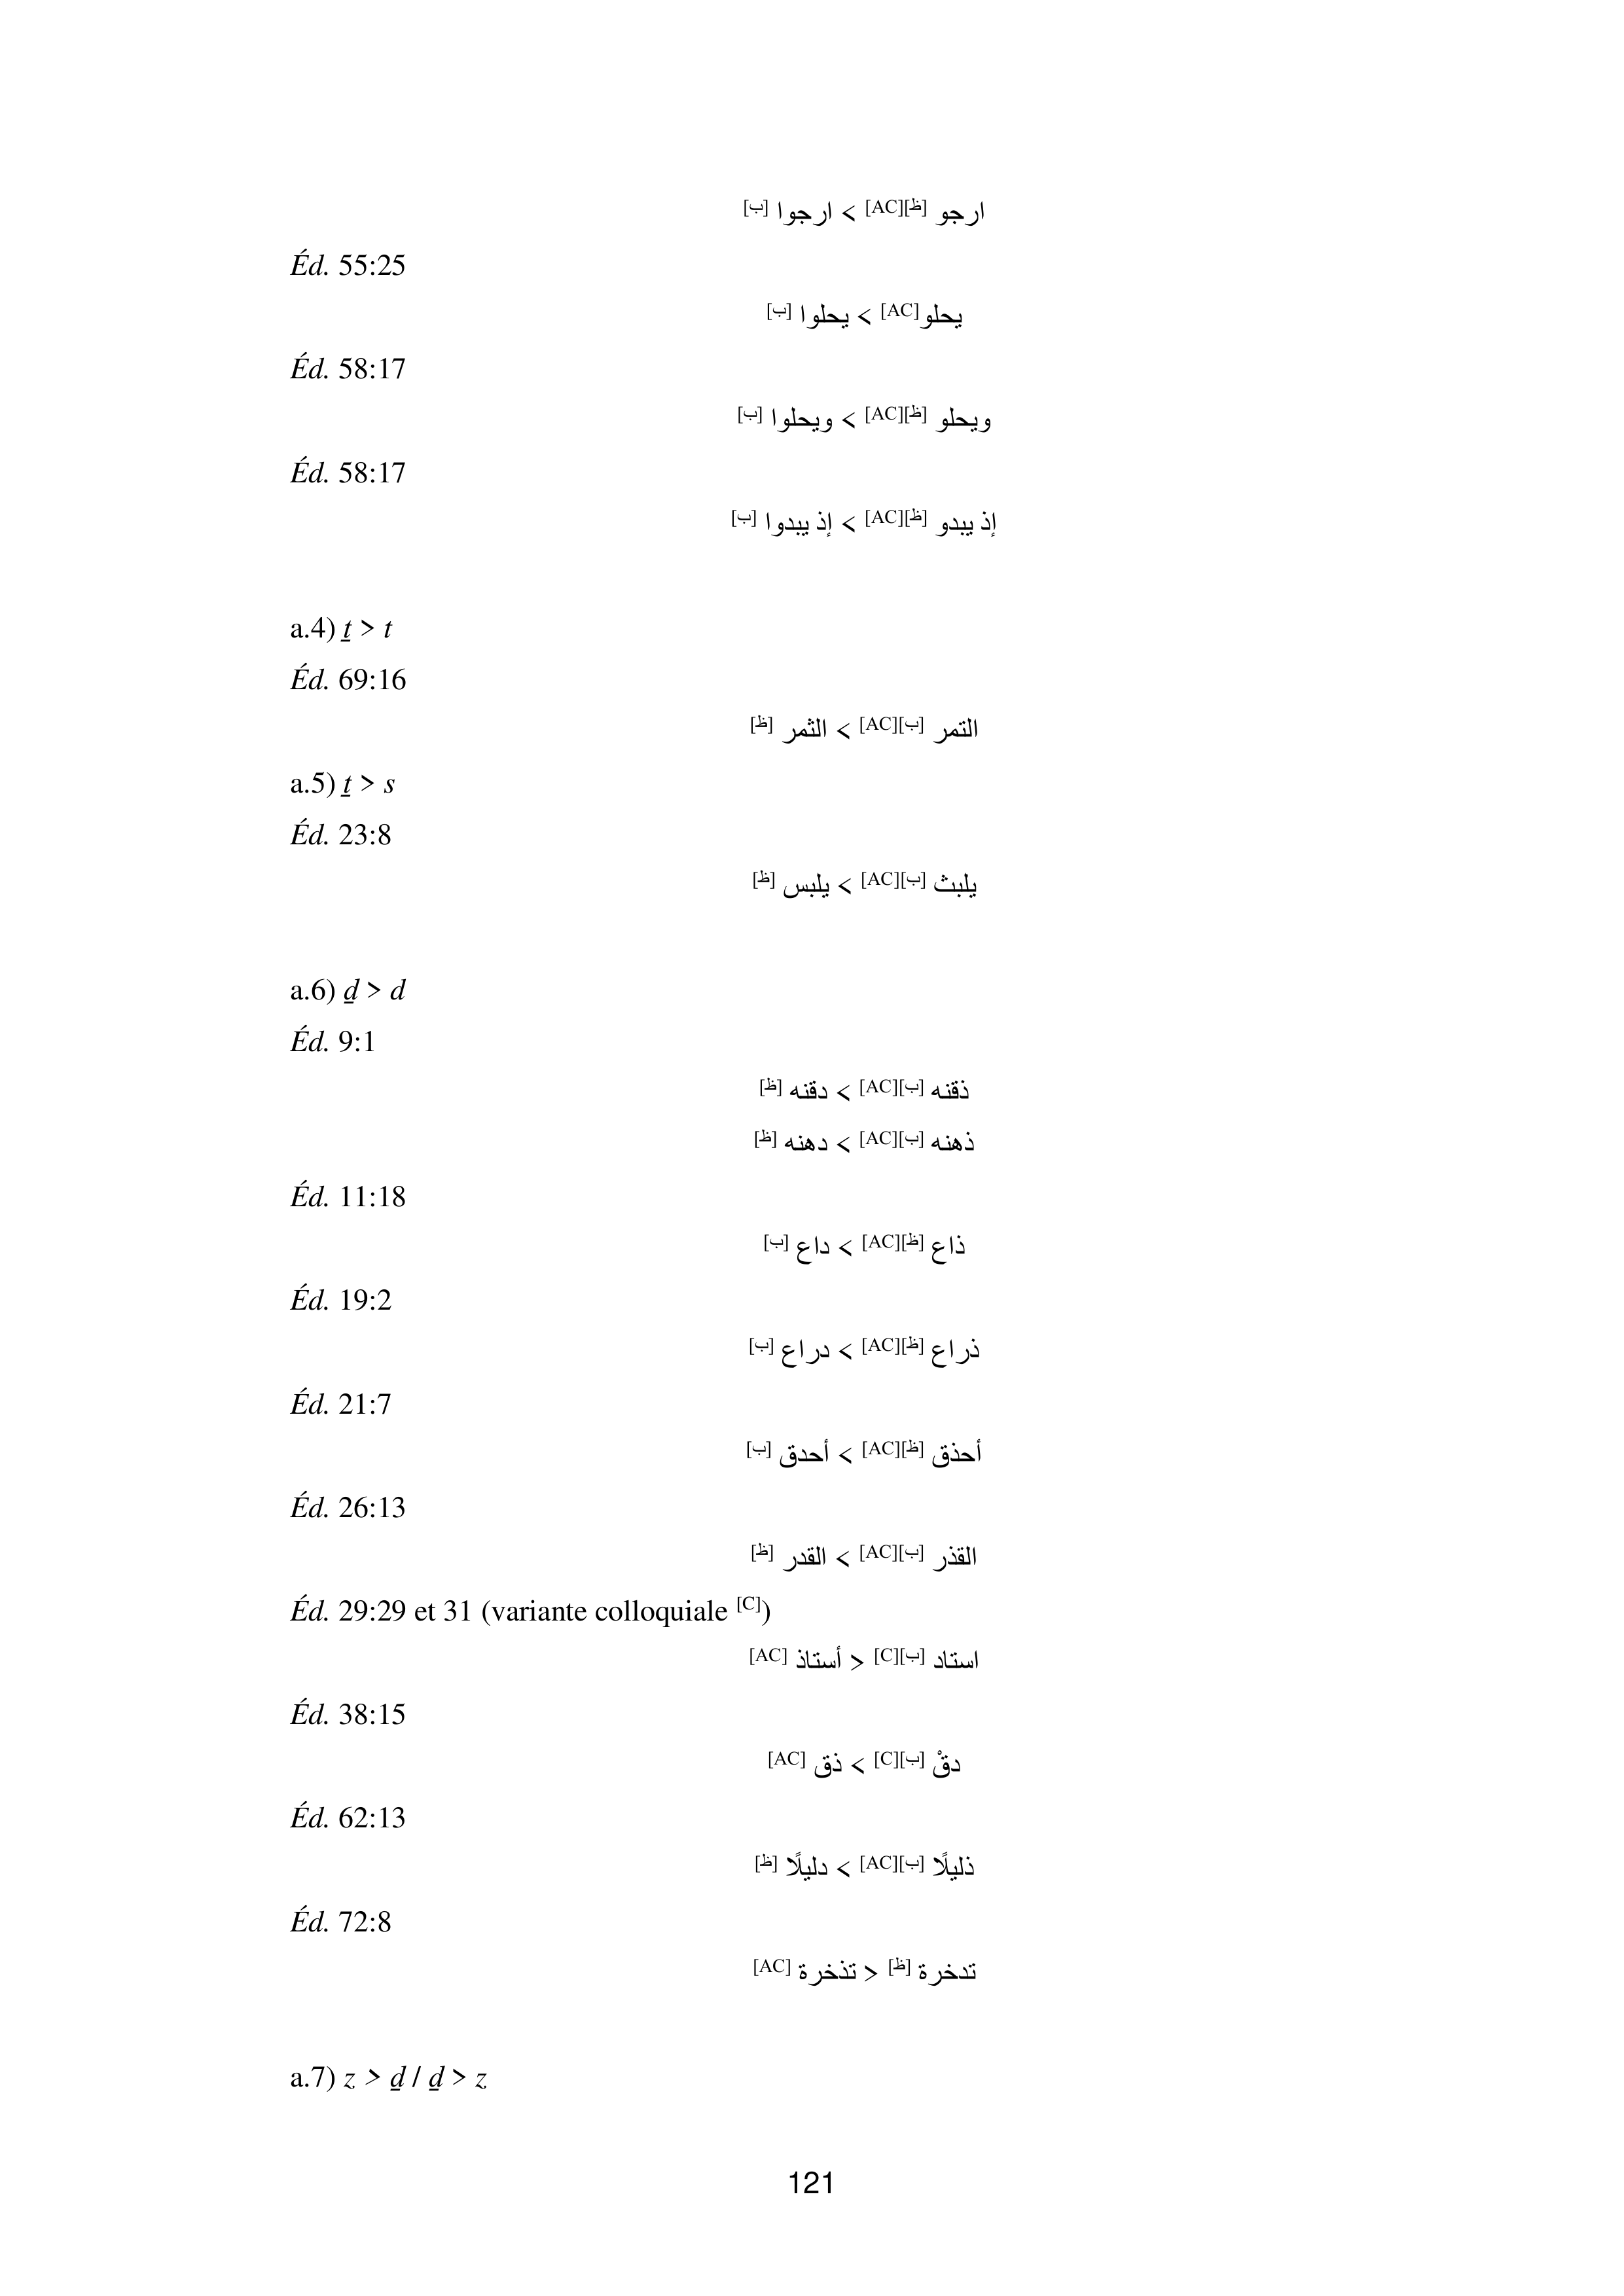 ارجو [ظ][AC] > ارجوا [ب]
Éd. 55:25
يحلو[AC] > يحلوا [ب]
Éd. 58:17
ويحلو [ظ][AC] > ويحلوا [ب]
Éd. 58:17
إذ يبدو [ظ][AC] > إذ يبدوا [ب]
a.4) ṯ > t
Éd. 69:16
التمر [ب][AC] > الثمر [ظ]
a.5) ṯ > s
Éd. 23:8
يلبث [ب][AC] > يلبس [ظ]
a.6) ḏ > d
Éd. 9:1
ذقنه [ب][AC] > دقنه [ظ]
ذهنه [ب][AC] > دهنه [ظ]
Éd. 11:18
ذاع [ظ][AC] > داع [ب]
Éd. 19:2
ذراع [ظ][AC] > دراع [ب]
Éd. 21:7
أحذق [ظ][AC] > أحدق [ب]
Éd. 26:13
القذر [ب][AC] > القدر [ظ]
Éd. 29:29 et 31 (variante colloquiale [C])
استاد [ب][C] < أستاذ [AC]
Éd. 38:15
دقْ [ب][C] > ذق [AC]
Éd. 62:13
ذليلًا [ب][AC] > دليلًا [ظ]
Éd. 72:8
تدخرة [ظ] < تذخرة [AC]
a.7) z > ḏ / ḏ > z
121